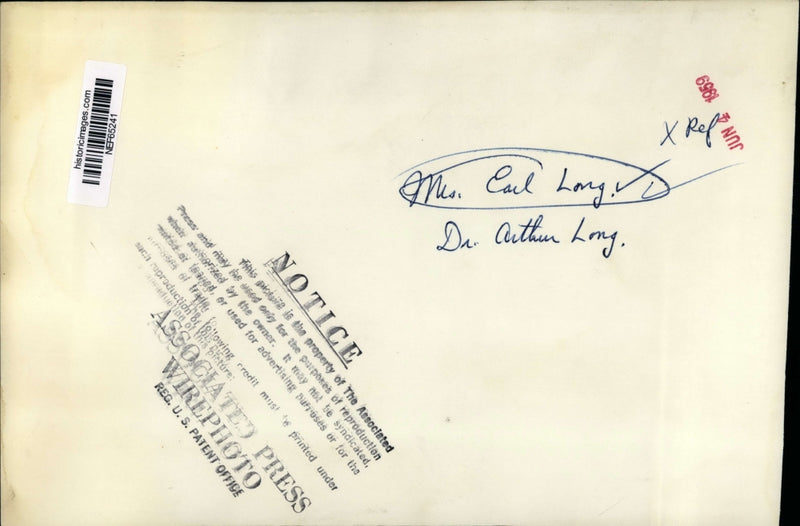 historicimages.com
NEF65241
JUN 4 1959
X Ref
Mrs. Earl Long.
Dr. Arthur Long.
NOTICE
This picture is the property of The Associated
Press and may be used only for the purposes of reproduction
when authorized by the owner. It may not be syndicated,
rented or loaned, or used for advertising purposes or for the
purposes of trade. The following credit must be printed under
such reproduction of this picture:
ASSOCIATED PRESS
WIREPHOTO
REG. U. S. PATENT OFFICE